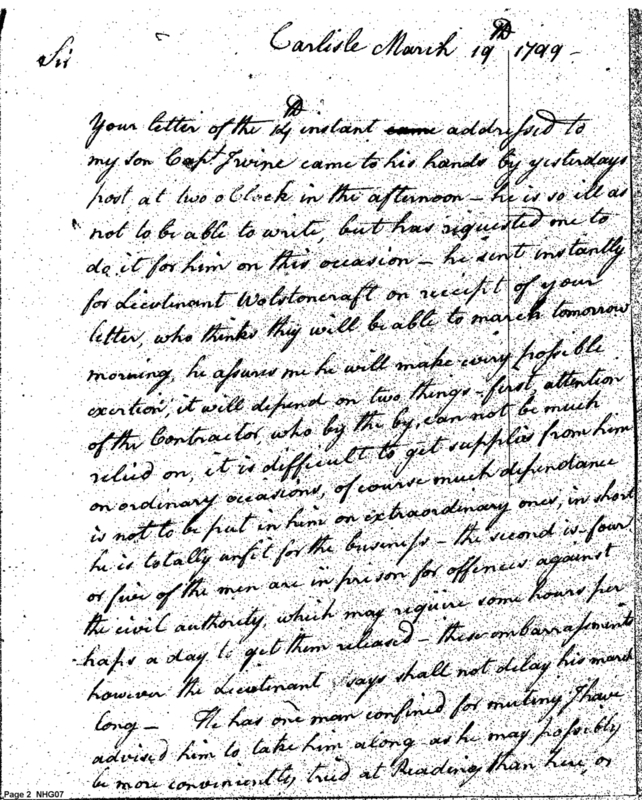 Carlisle March 19th 1799 -
Sir
Your letter of the 14th instant came addressed to
my son Capt Irvine came to his hands by yesterdays
post at two oClock in the afternoon - he is so ill as
not to be able to write, but has requested me to
do it for him on this occasion - he sent instantly
for Lieutenant Wolstoncraft on receipt of your
letter, who thinks they will be able to march tomorrow
morning, he assures me he will make every possible
exertion, it will depend on two things - first, attention
of the Contractor, who by the by, can not be much
relied on, it is difficult to get supplies from him
on ordinary occasions, of course much dependance
is not to be put in him on extraordinary ones, in short
he is totally unfit for the business - the second is - four
or five of the men are in prison for offences against
the civil authority, which may require some hours per
haps a day to get them released - these embarrassments
however the Lieutenant says shall not delay his march
long - He has one man confined for mutiny I have
advised him to take him along as he may possibly
be more conveniently tried at Reading than here, or
Page 2 NHG07